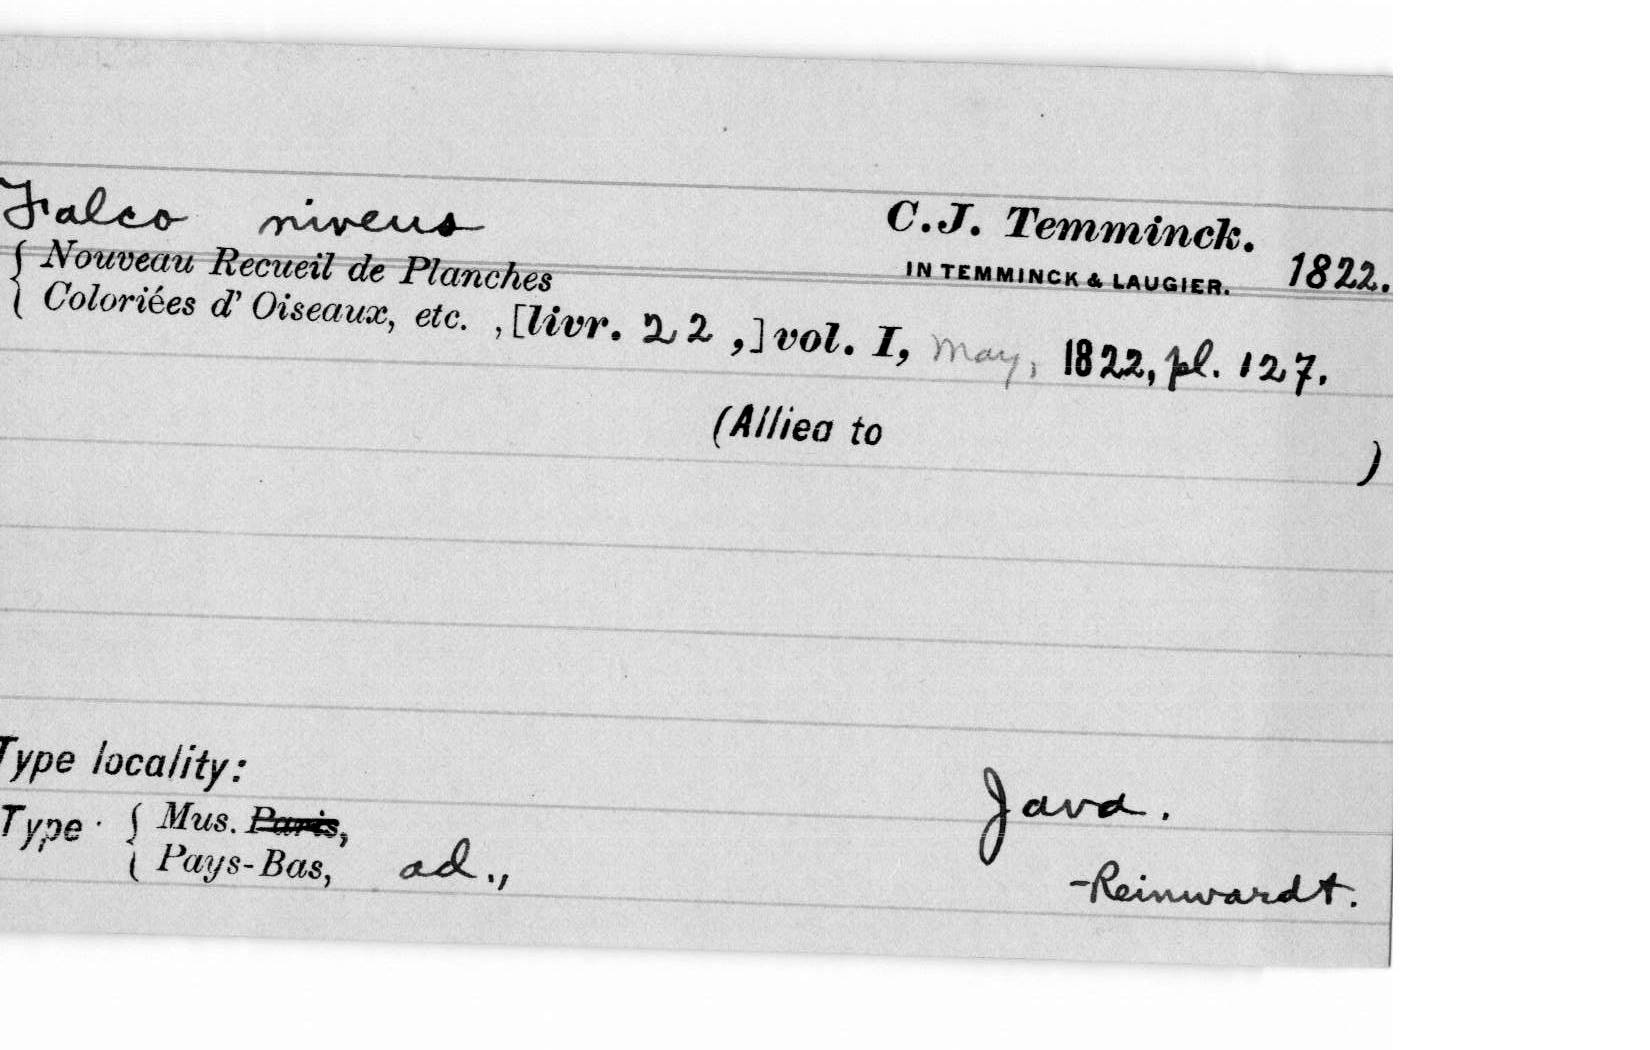 Falco niveus C.J. Temminck.
IN TEMMINCK & LAUGIER. 1822.
{ Nouveau Recueil de Planches
Coloriées d' Oiseaux, etc. , [livr. 22 ,] vol. I, May, 1822, pl. 127.
(Allied to )
Type locality:
Java.
Type · { Mus. Paris,
Pays-Bas, ad.,
-Reinwardt.